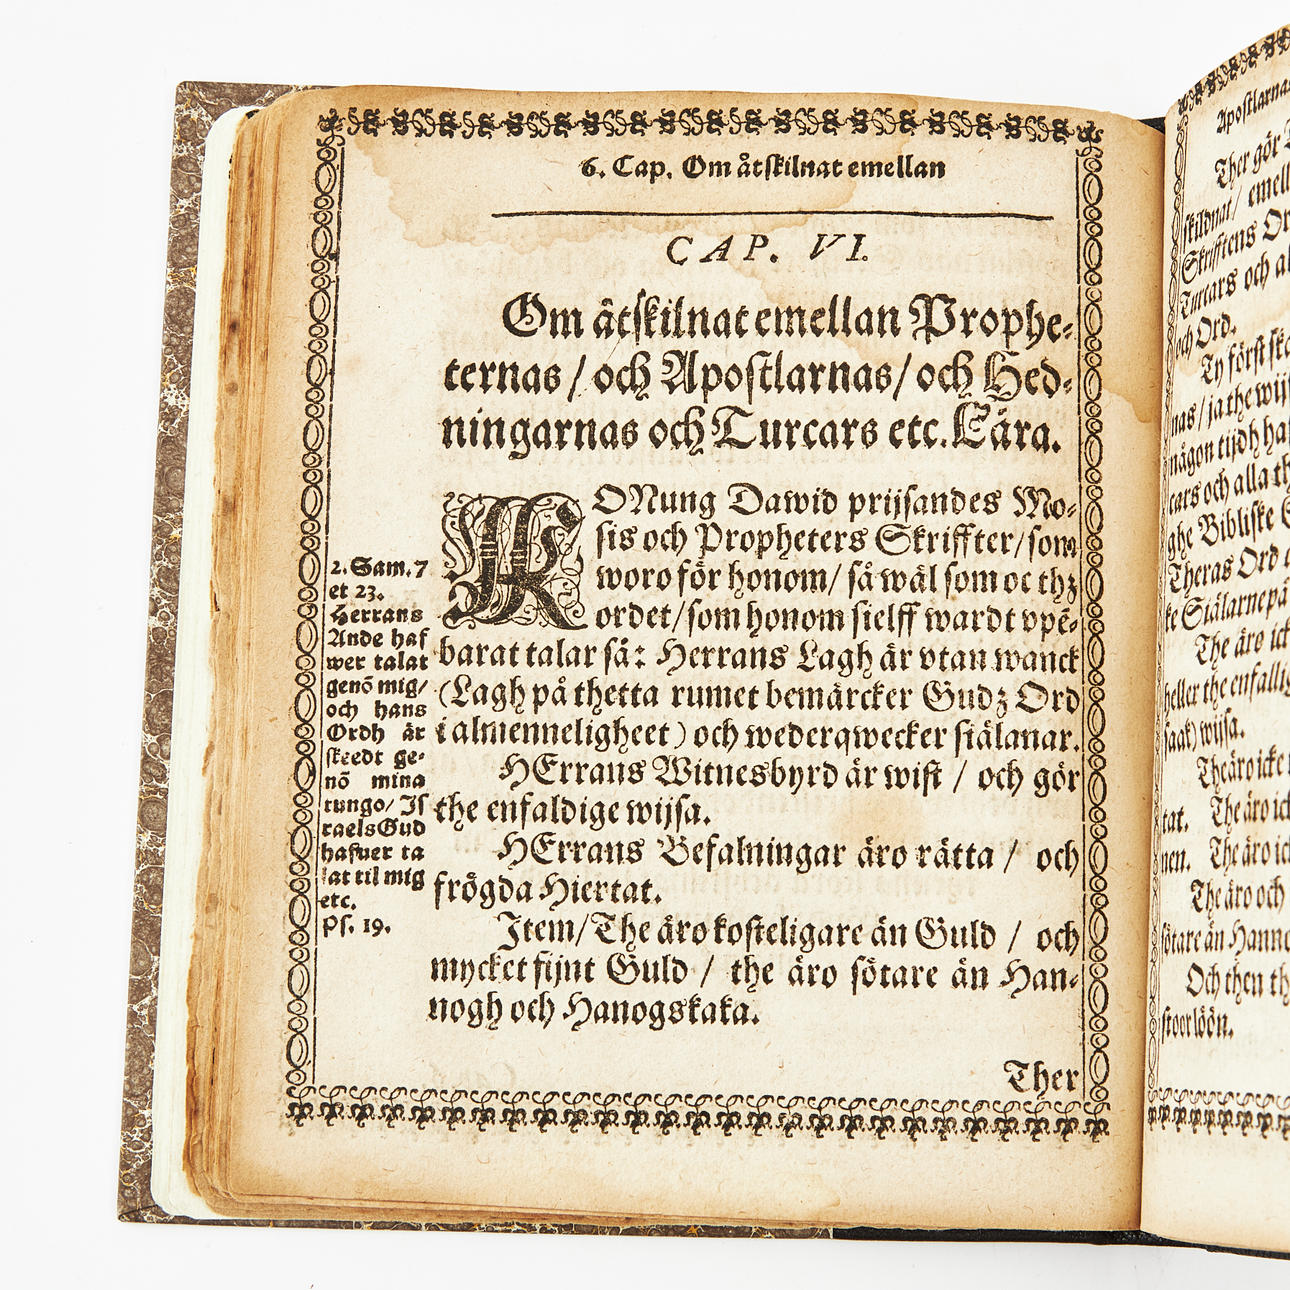 6. Cap. Om åtskilnat emellan
CAP. VI.
Om åtskilnat emellan Prophe-
ternas / och Apostlarnas / och Hed-
ningarnas och Turcars etc. Lära.
KONung Dawid prijsandes Mo-
sis och Propheters Skriffter / som
woro för honom / så wäl som oc thz
ordet / som honom sielff wardt vpē-
barat talar så: Herrans Lagh är vtan wanck
(Lagh på thetta rumet bemärcker Gudz Ord
i almenneligheet) och wederqwecker siälanar.
HErrans Witnesbyrd är wist / och gör
the enfaldige wijsa.
HErrans Befalningar äro rätta / och
frögda Hiertat.
Item / The äro kosteligare än Guld / och
mycket fijnt Guld / the äro sötare än Han-
nogh och Hanogskaka.
Ther
2. Sam. 7
et 23.
Herrans
Ande haf
wer talat
genō mig/
och hans
Ordh är
skeedt ge-
nō mina
tungo/ Is
raels Gud
hafuer ta
lat til mig
etc.
Ps. 19.
Apostlarnas
Ther gör
skildnat / emell
Skrifftens Or
Turcars och al
och Ord.
Ty först ska
nas / ja the wij
någon tijdh ha
cars och alla th
ghe Bibliske
Theras Ord
ke Siälarne på
The äro ick
heller the enfallig
saak) wijsa.
The äro icke
tat. The äro ick
nen. The äro ick
The äro och
sötare än Hanno
Och then th
stoor löön.